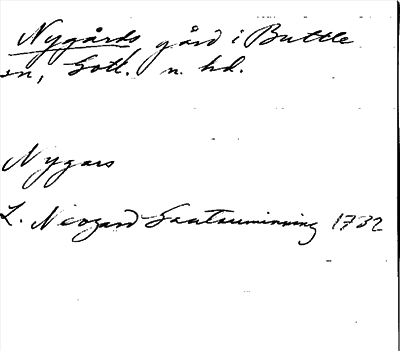 Nygårds gård i Buttle
sn, Gotl. n. hd.
Nygars
L. Neogard 1732